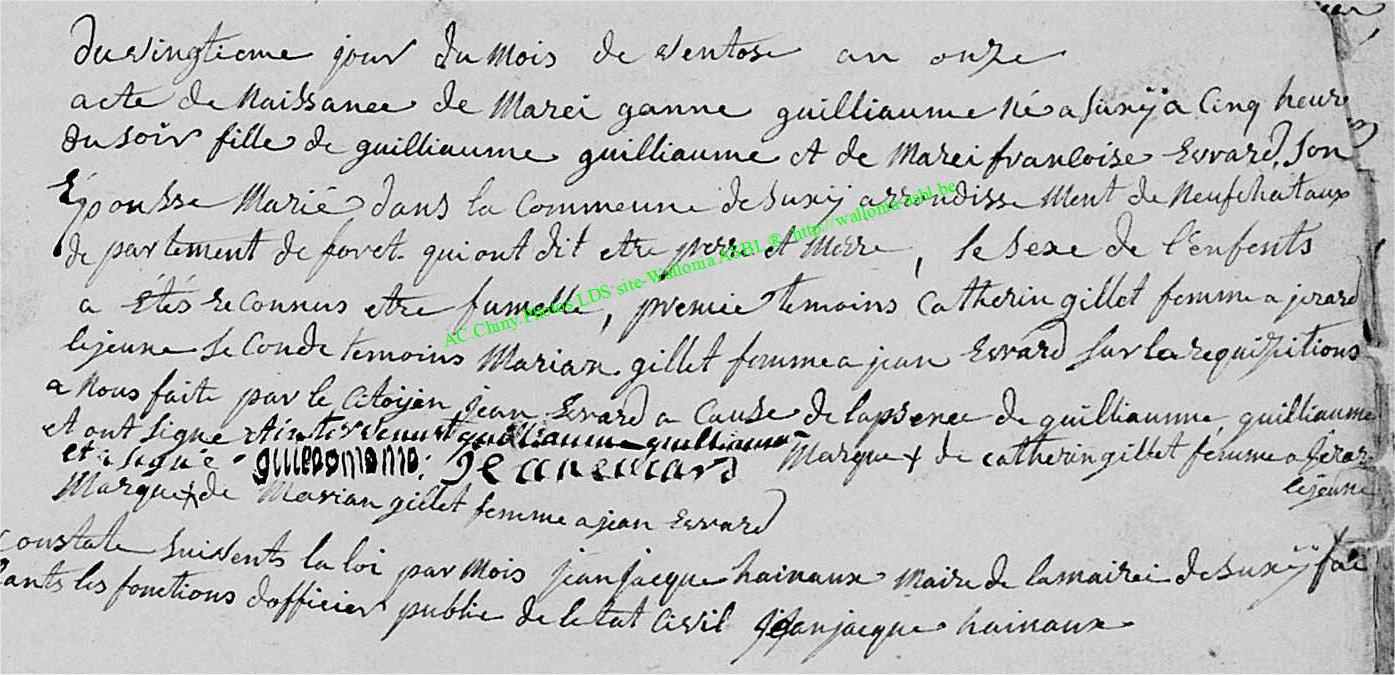 du vingtieme jour du mois de ventose an onze
acte de naissance de Marei ganne guilliaume né a suxÿ a cinq heure
du soir fille de guilliaume guilliaume et de Marei francoise Evrard, son
Épousse Marié dans la commeune de suxÿ arrondissement de neufchataux
de partement de foret qui ont dit etre perre et merre, le sexe de l'enfents
a étés reconnus etre fumelle, premié temoins catherin gillet femme a jerard
lejeune seconde temoins Marian gillet femme a jean Evrard sur la requisitions
a nous faite par le citoyen jean Evrard a cause de lapsence de guilliaume guilliaume
et ont signe et intervenus guilliaume guilliaume
et a signé jeanevrard Marque + de catherin gillet femme a jerard
lejeune
Marque + de Marian gillet femme a jean Evrard
constate suivents la loi par mois jean jacque hainaux maire de la mairei de suxÿ fai
sants les fonctions dofficier public de letat civil jean jacque hainaux
AC Chiny.Photos LDS site-Walloma ASBL ® http://walloma-asbl.be